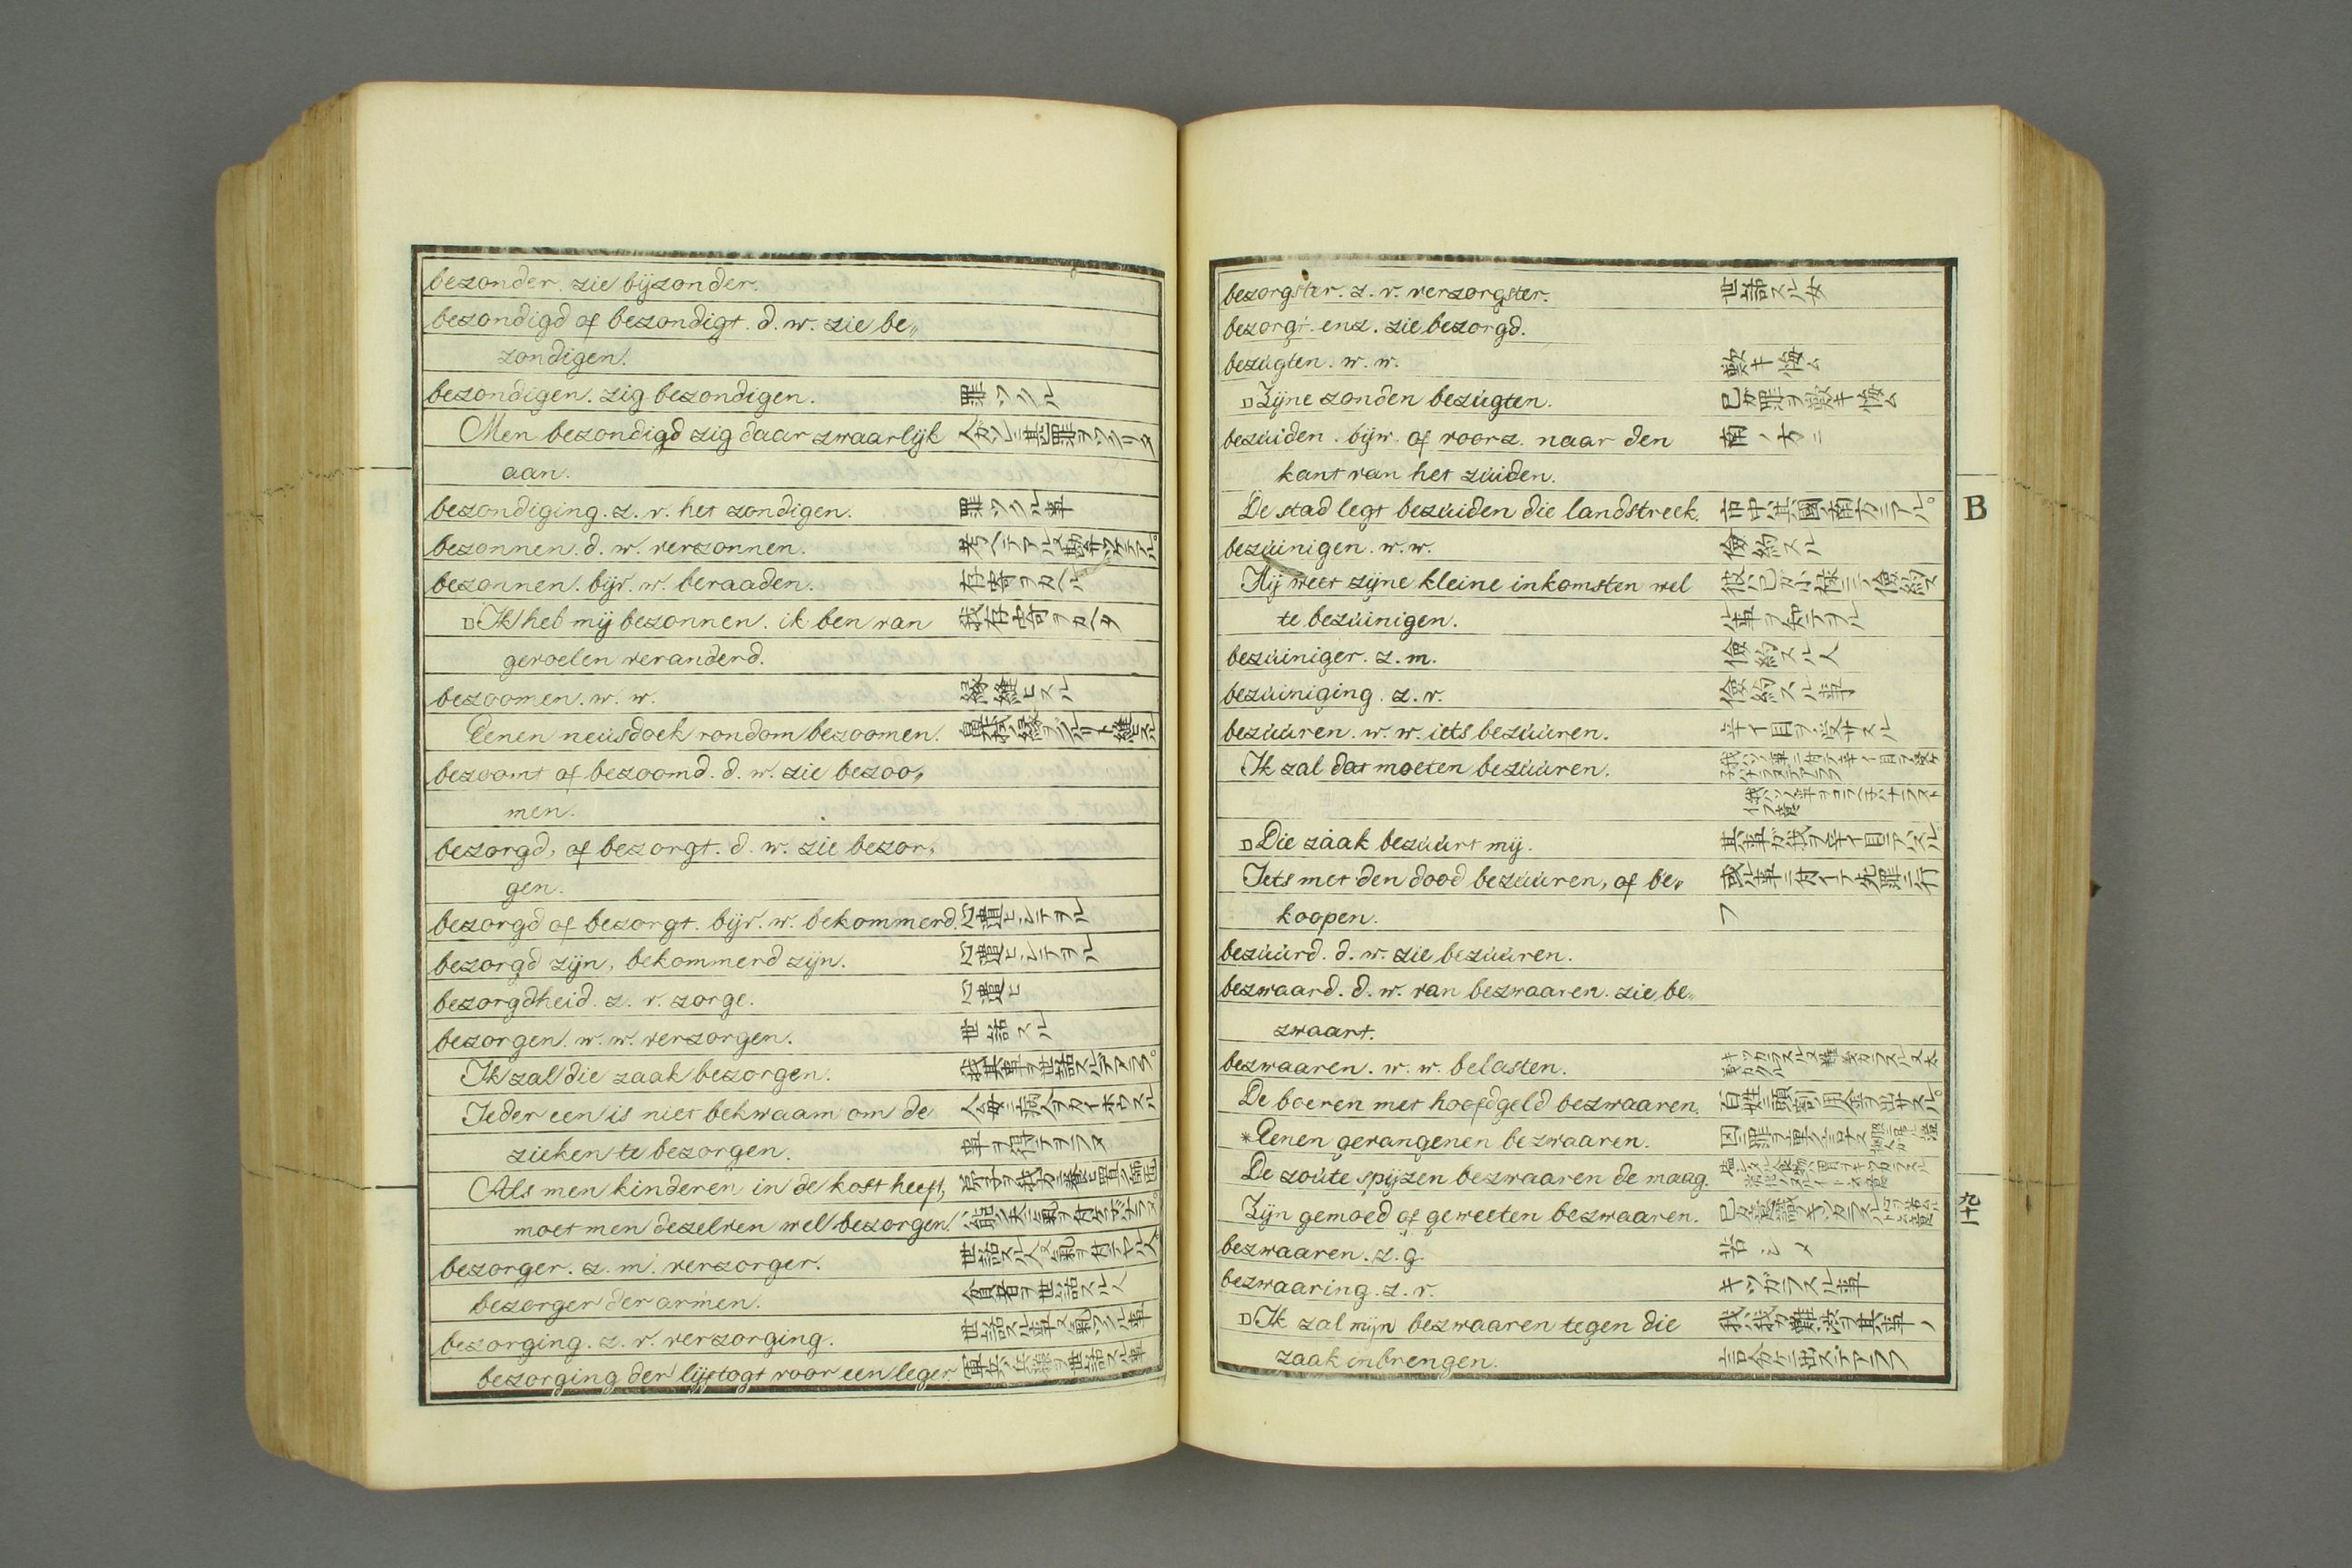 bezonder. zie bijzonder.
bezondigd of bezondigt. d. w. zie be„
zondigen.
bezondigen. zig bezondigen. 罪ツクル
Men bezondigd zig daar zwaarlijk
aan.
bezondiging. z. v. het zondigen. 罪ツクル事
bezonnen. d. w. verzonnen.
bezonnen. bijv. w. beraaden. 存寄ヲカヘル
D Ik heb mij bezonnen. ik ben van 我存寄ヲカヘタ
gevoelen veranderd.
bezoomen. w. w. 縁縫ヒスル
Eenen neusdoek rondom bezoomen.
bezoomt of bezoomd. d. w. zie bezoo„
men.
bezorgd, of bezorgt. d. w. zie bezor„
gen.
bezorgd of bezorgt. bijv. w. bekommerd. 心遣ヒシテヲル
bezorgd zijn, bekommerd zijn. 心遣ヒシテヲル
bezorgdheid. z. v. zorge. 心遣ヒ
bezorgen. w. w. verzorgen. 世話スル
Ik zal die zaak bezorgen. 我其事ヲ世話スルデアラフ。
Ieder een is niet bekwaam om de
zieken te bezorgen. 事ヲ得テヲラヌ
Als men kinderen in de kost heeft,
moet men dezelven wel bezorgen.
bezorger. z. m. verzorger.
bezorger der armen. 貧者ヲ世話スル人
bezorging. z. v. verzorging.
bezorging der lijftogt voor een leger
bezorgster. z. v. verzorgster. 世話スル女
bezorgt. enz. zie bezorgd.
bezugten. w. w. 歎キ悔ム
D Zijne zonden bezugten. 己ガ罪ヲ歎キ悔ム
bezúiden. bijw. of voorz. naar den 南ノ方ニ
kant van het zúiden.
De stad legt bezúiden die landstreek. 市中ハ其國ノ南方ニアル。
bezúinigen. w. w. 儉約スル
Hij weet zijne kleine inkomsten wel
te bezúinigen. ル事ヲ知テヲル
bezúiniger. z. m. 儉約スル人
bezúiniging. z. v. 儉約スル事
bezúúren. w. w. iets bezúúren. 辛イ目ヲ受サスル
Ik zal dat moeten bezúúren.
D Die zaak bezúúrt mij.
Iets met den dood bezúúren, of be„ 或ル事ニ付イテ死罪ニ行
koopen. フ
bezúúrd. d. w. zie bezúúren.
bezwaard. d. w. van bezwaaren. zie be„
zwaart.
bezwaaren. w. w. belasten.
De boeren met hoofdgeld bezwaaren.
*Eenen gevangenen bezwaaren.
De zoúte spijzen bezwaaren de maag.
Zijn gemoed of geweeten bezwaaren.
bezwaaren. z. g.
bezwaaring. z. v. キツガラスル事
D Ik zal mijn bezwaaren tegen die
zaak inbrengen.
B
九十一